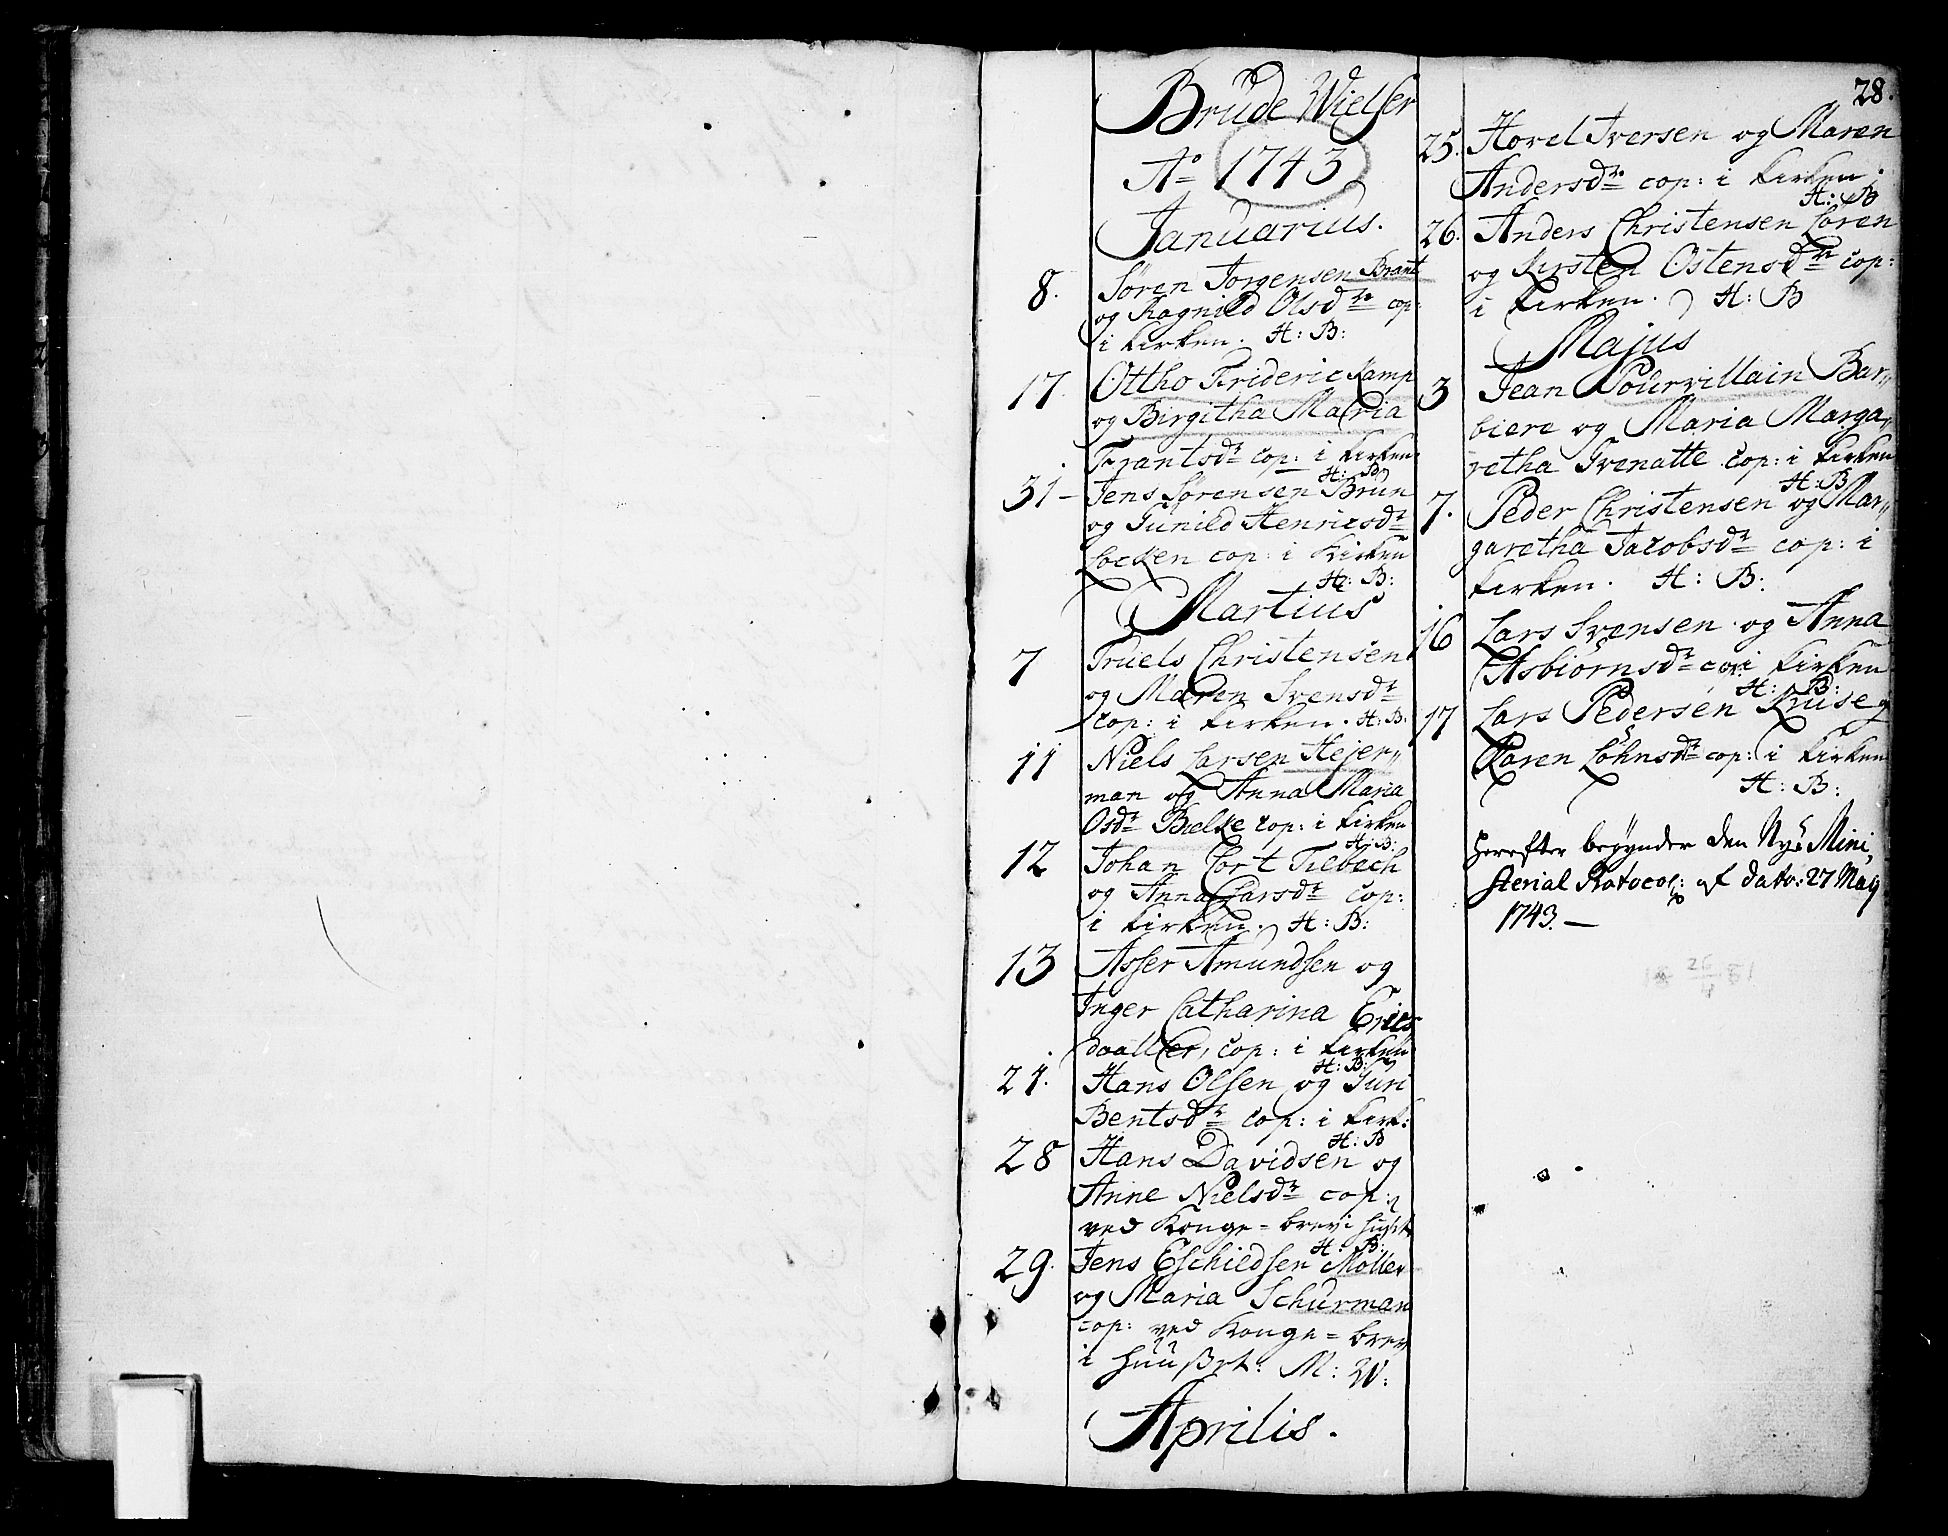 Brude Wielser
Aº 1743
Januarius.
8. Søren Jorgensen Brant
og Ragnild Olsdr cop:
i Kirken. H: B:
17 Ottho Frideric Kamp
og Birgitha Maria
Frantsdr cop: i Kirken
H: B
31 - Jens Sørensen Brun
og Gunild Henricsdr
Locken cop: i Kirken
H: B:
Martius
7 Truels Christensen
og Maren Svensdr
cop: i Kirken. H: B:
11 Niels Larsen Hejer„
man og Anna Maria
Osdr Bielke cop: i Kirken
H: B:
12 Johan Cort Tilbech
og Anna Larsdr cop:
i Kirken. H: B:
13 Asser Amundsen og
Inger Catharina Erics
daatter, cop: i Kirken
H: B:
21. Hans Olsen og Guri
Bentsdr cop: i Kirk:
H: B
28 Hans Davidsen og
Anne Nielsdr cop:
ved Konge=brev i
H: B:
29. Jens Eschildsen Moller
og Maria Schurman
cop: ved Konge=brev
i M: W:
Aprilis.
28.
25. Hovel Iversen og Maren
Andersdr cop: i Kirken.
H: B
26. Anders Christensen Loren
og Kirsten Ostensdr cop:
i Kirken. H: B
Majus
3 Jean Pourvillain Bar„
biere og Maria Marga„
retha Ivenatte cop: i Kirken
H: B
7. Peder Christensen og Mar„
garetha Jacobsdr cop: i
Kirken. H: B:
16 Lars Svensen og Anna
Asbiørnsdr cop: i Kirken
H: B:
17 Lars Pedersen Kruse og
Karen Løhnsdr cop: i Kirken
H: B:
Herefter begynder den Nye Mini„
sterial Protocol: af dato: 27 May
1743. —